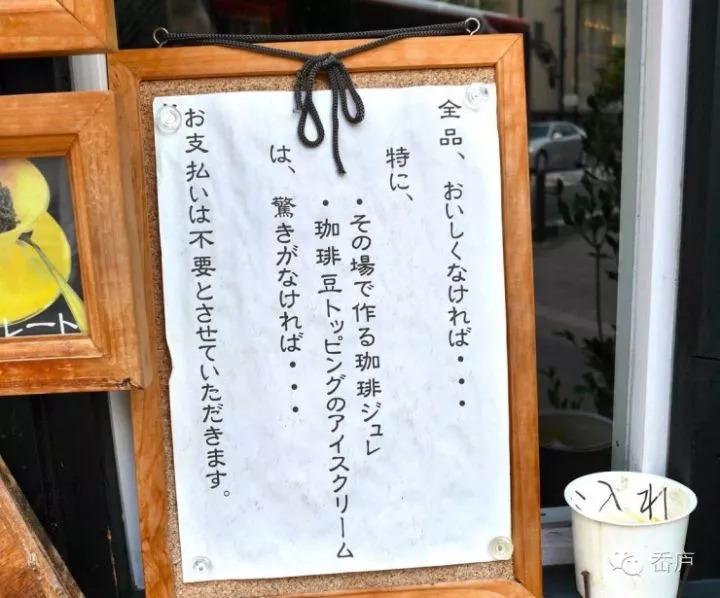 全品、おいしくなければ・・・
特に、
・その場で作る珈琲ジュレ
・珈琲豆トッピングのアイスクリーム
は、驚きがなければ・・・
お支払いは不要とさせていただきます。
レート
入れ
岙庐